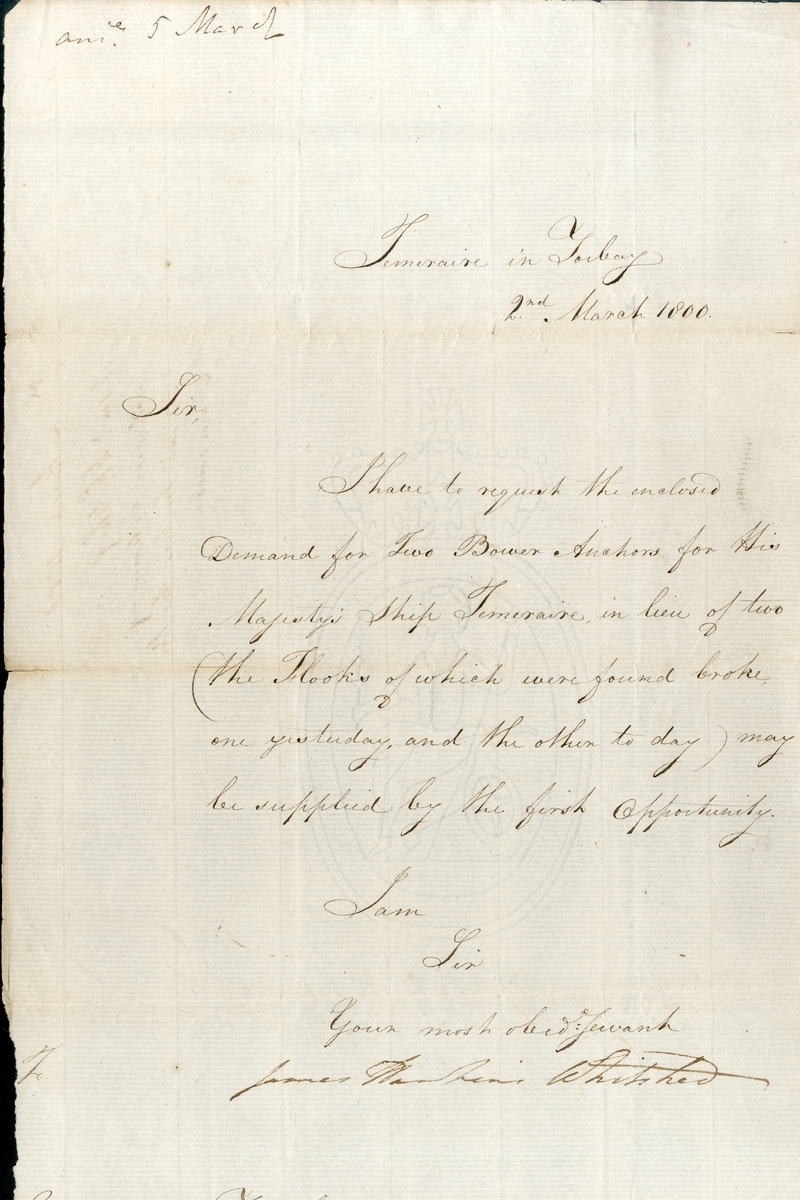 5 March
Temeraire in Torbay
2nd. March 1800.
Sir,
I have to request the enclosed
Demand for Two Bower Anchors, for His
Majesty's Ship Temeraire, in lieu of two
(the Flooks of which were found broke,
one yesterday, and the other to day) may
be supplied by the first Opportunity.
I am
Sir
Your most obedt: Servant
James Hawkins Whitshed
To